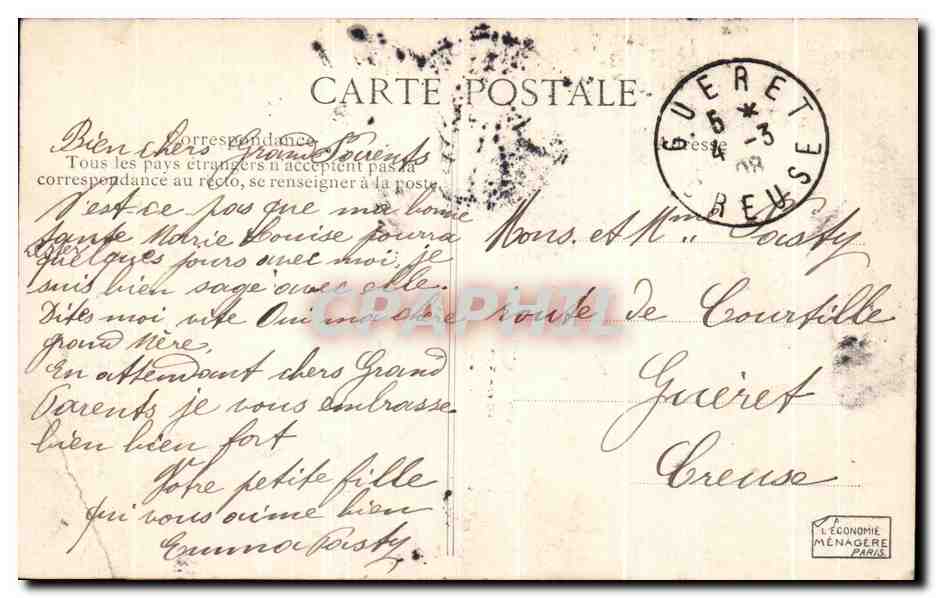 CARTE POSTALE
Correspondance
Tous les pays étrangers n'acceptent pas la
correspondance au recto, se renseigner à la poste.
Adresse
GUERET
5 *
4 -3
08
CREUSE
Bien chers Grands Parents
N'est-ce pas que ma bonne
tante Marie Louise pourra
rester quelques jours avec moi, je
suis bien sage avec elle.
Dites moi vite Oui ma chère
grand Mère.
En attendant chers Grand
Parents je vous embrasse
bien bien fort
Votre petite fille
qui vous aime bien
Emma Pasty
Mons. et Mme Pasty
route de Courtille
Guéret
Creuse
CPAPHIL
L'ÉCONOMIE
MÉNAGÈRE
PARIS.